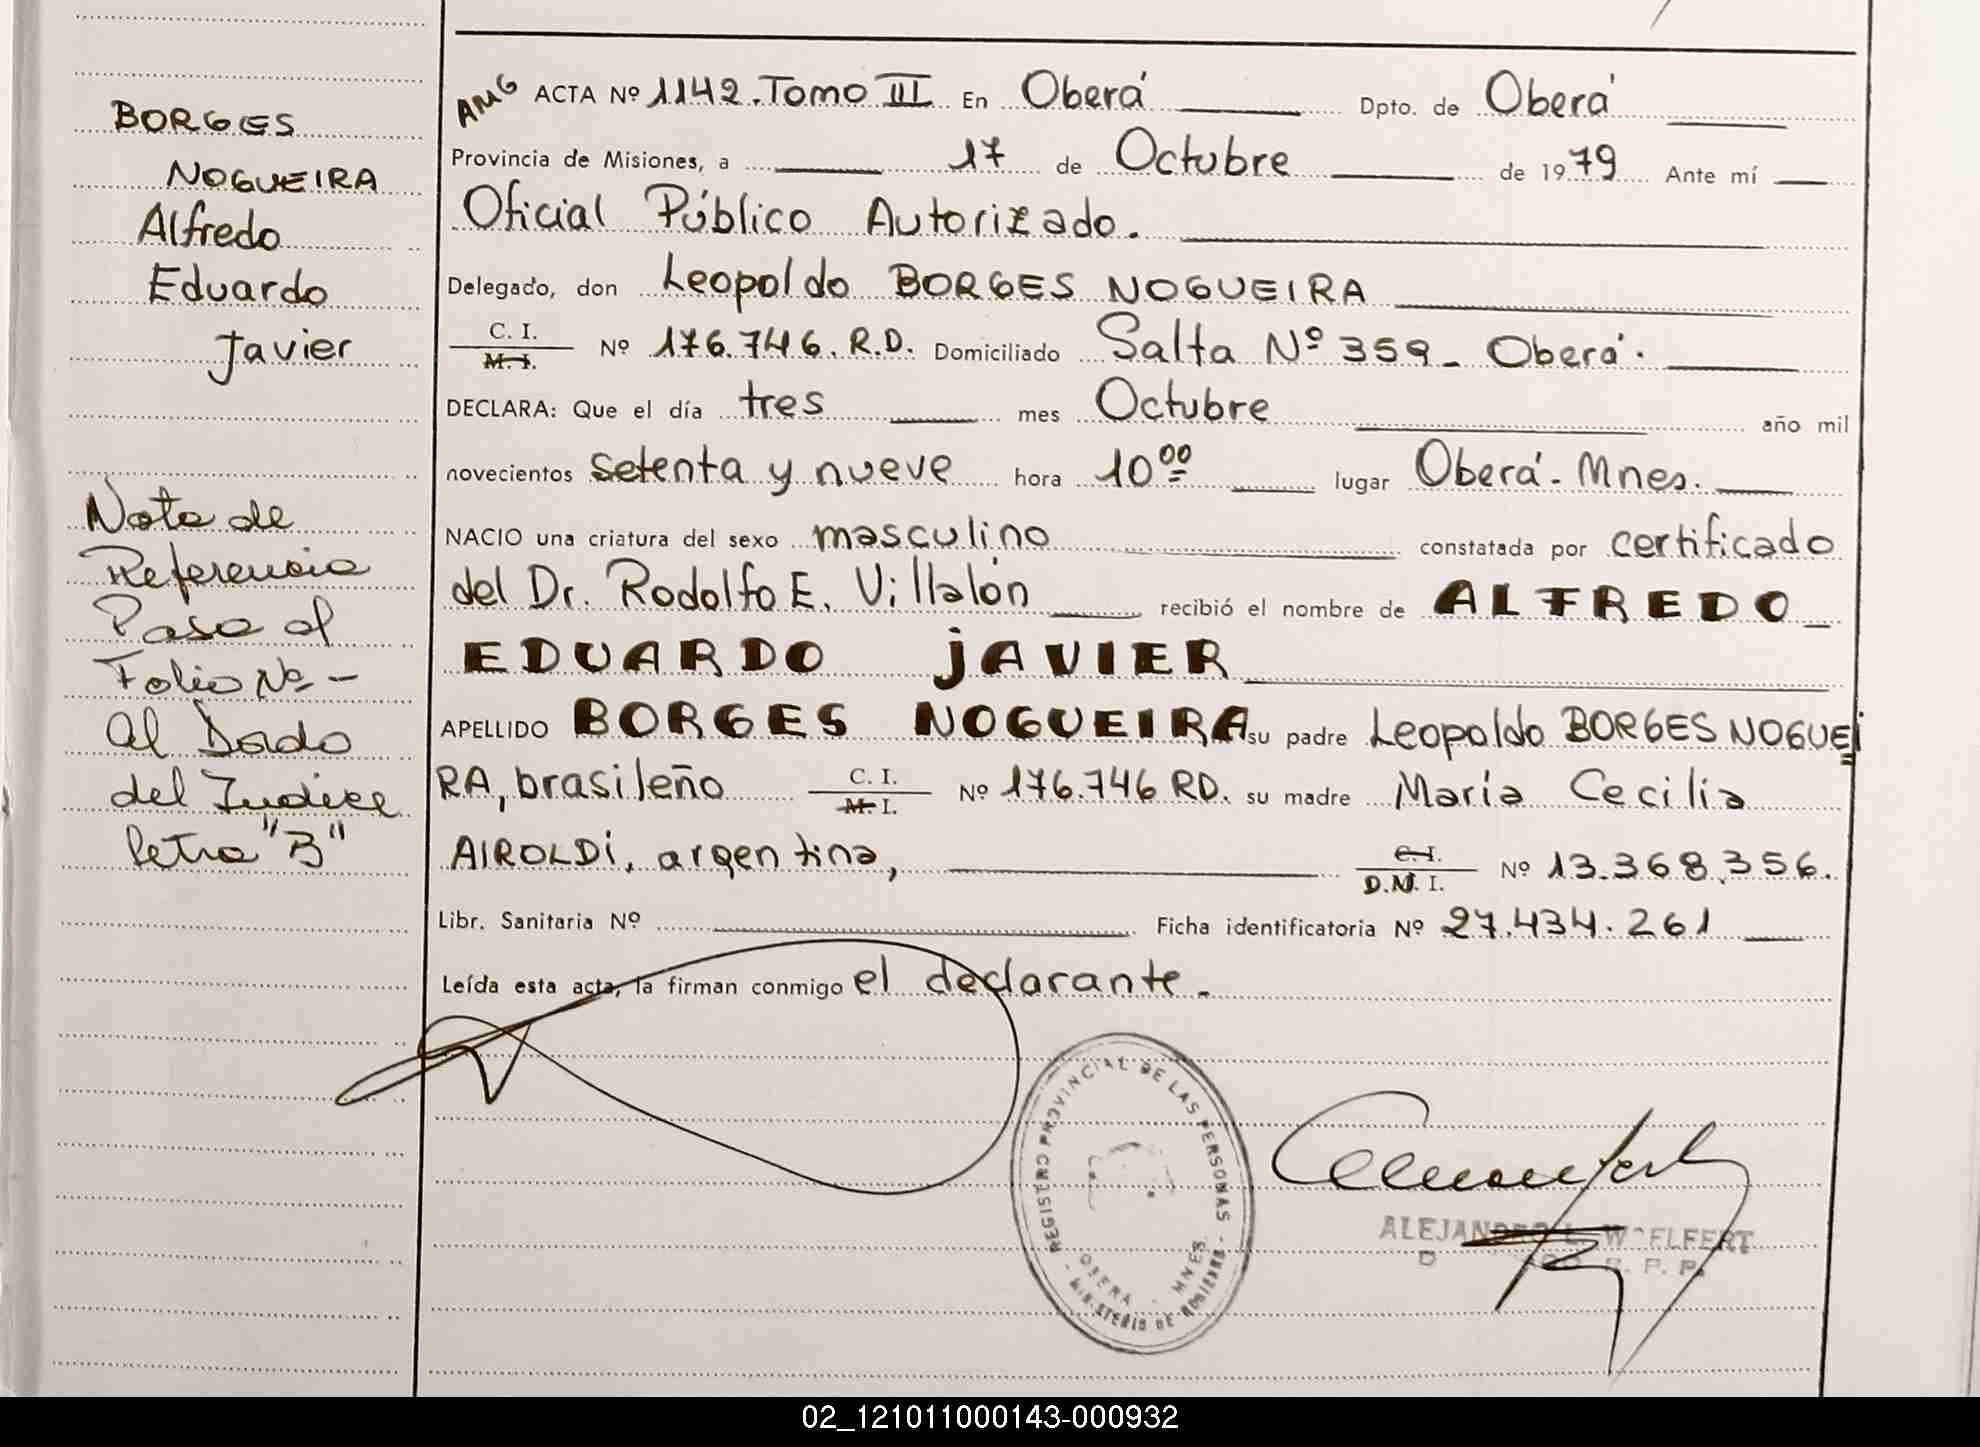 BORGES
NOGUEIRA
Alfredo
Eduardo
Javier
Nota de
Referencia
Pase al
Folio Nº -
al Dordo
del Indice
letra "B"
AMG ACTA Nº 1142. Tomo III En Oberá Dpto. de Oberá
Provincia de Misiones, a 17 de Octubre de 1979 Ante mí
Oficial Público Autorizado.
Delegado, don Leopoldo BORGES NOGUEIRA
C. I. / M. I. Nº 176.746. R.D. Domiciliado Salta Nº 359 - Oberá.
DECLARA: Que el día tres mes Octubre año mil
novecientos setenta y nueve hora 10 00 lugar Oberá - Mnes.
NACIO una criatura del sexo masculino constatada por certificado
del Dr. Rodolfo E. Villalón recibió el nombre de ALFREDO
EDUARDO JAVIER
APELLIDO BORGES NOGUEIRA su padre Leopoldo BORGES NOGUEI
RA, brasileño C. I. / M. I. Nº 176.746 RD. su madre María Cecilia
AIROLDI, argentina, C. I. / D.N. I. Nº 13.368.356.
Libr. Sanitaria Nº Ficha identificatoria Nº 27.434.261
Leída esta acta, la firman conmigo el declarante.
REGISTRO PROVINCIAL DE LAS PERSONAS - MINISTERIO DE GOBIERNO -
OBERA - MNES
02_121011000143-000932